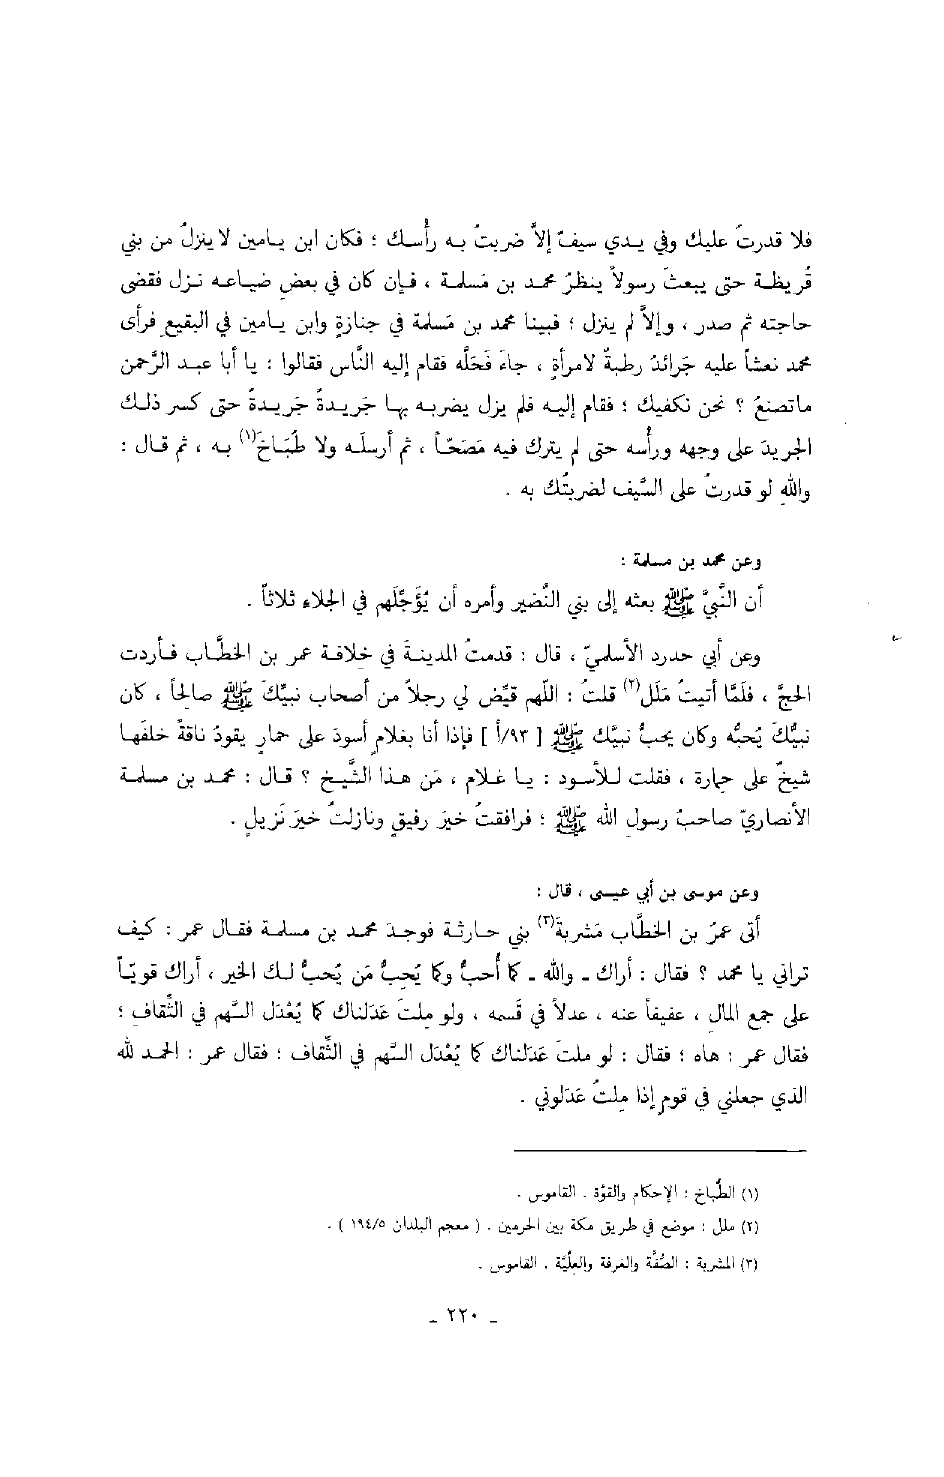 فلا قدرتُ عليك وفي يدي سيفٌ إلاَّ ضربتُ به رأسك ؛ فكان ابن يامين لا ينزلُ من بني
قُريظة حتى يبعثَ رسولاً ينظرُ محمد بن مَسلمة ، فإن كان في بعضِ ضياعه نزل فقضى
حاجته ثم صدر ، وإلاَّ لم ينزل ؛ فبينا محمد بن مَسلمة في جنازةٍ وابن يامين في البقيع فرأى
محمد نعشاً عليه جَرائدُ رطبةٌ لامرأةٍ ، جاءَ فَحَلَّه فقام إليه النَّاس فقالوا : يا أبا عبد الرَّحمن
ماتصنعُ ؟ نحن نكفيك ؛ فقام إليه فلم يزل يضربه بها جَريدةً جَريدةً حتى كسر ذلك
الجريدَ على وجهه ورأسه حتى لم يترك فيه مَصَحّاً ، ثم أرسلَه ولا طَبَاخَ(١) به ، ثم قال :
واللهِ لو قدرتُ على السَّيف لضربتُك به .
وعن محمد بن مسلمة :
أن النَّبيَّ ﷺ بعثه إلى بني النَّضير وأمره أن يُؤَجِّلَهم في الجلاء ثلاثاً .
وعن أبي حدرد الأسلميّ ، قال : قدمتُ المدينةَ في خلافة عمر بن الخطَّاب فأردت
الحجَّ ، فلَمَّا أتيتُ مَلَل(٢) قلتُ : اللهم قيِّض لي رجلاً من أصحاب نبيِّكَ ﷺ صالحاً ، كان
نبيُّكَ يُحبُّه وكان يحبُّ نبيَّك ﷺ [ ٩٣/أ ] فإذا أنا بغلامٍ أسودَ على حمارٍ يقودُ ناقةً خلفَها
شيخٌ على حمارة ، فقلت للأسود : يا غلام ، مَن هذا الشَّيخ ؟ قال : محمد بن مسلمة
الأنصاريّ صاحبُ رسولِ الله ﷺ ؛ فرافقتُ خيرَ رفيقٍ ونازلتُ خيرَ نَزيلٍ .
وعن موسى بن أبي عيسى ، قال :
أتى عمرُ بن الخطَّاب مَشربةَ(٣) بني حارثة فوجدَ محمد بن مسلمة فقال عمر : كيف
تراني يا محمد ؟ فقال : أراك ـ والله ـ كما أُحبُّ وكما يُحِبُّ مَن يُحبُّ لك الخير ، أراك قويّاً
على جمع المال ، عفيفاً عنه ، عدلاً في قَسمه ، ولو مِلتَ عَدَلناك كما يُعْدَل السَّهم في الثِّقافِ ؛
فقال عمر : هاه ؛ فقال : لو ملتَ عَدَلناك كما يُعْدَل السَّهم في الثِّقاف ؛ فقال عمر : الحمد لله
الذي جعلني في قومٍ إذا مِلتُ عَدَلوني .
(١) الطَّباخ : الإحكام والقوَّة . القاموس .
(٢) ملل : موضع في طريق مكة بين الحرمين . ( معجم البلدان ١٩٤/٥ ) .
(٣) المشربة : الصُّفَّة والغرفة والعِلِّيَّة . القاموس .
ـ ٢٢٠ ـ